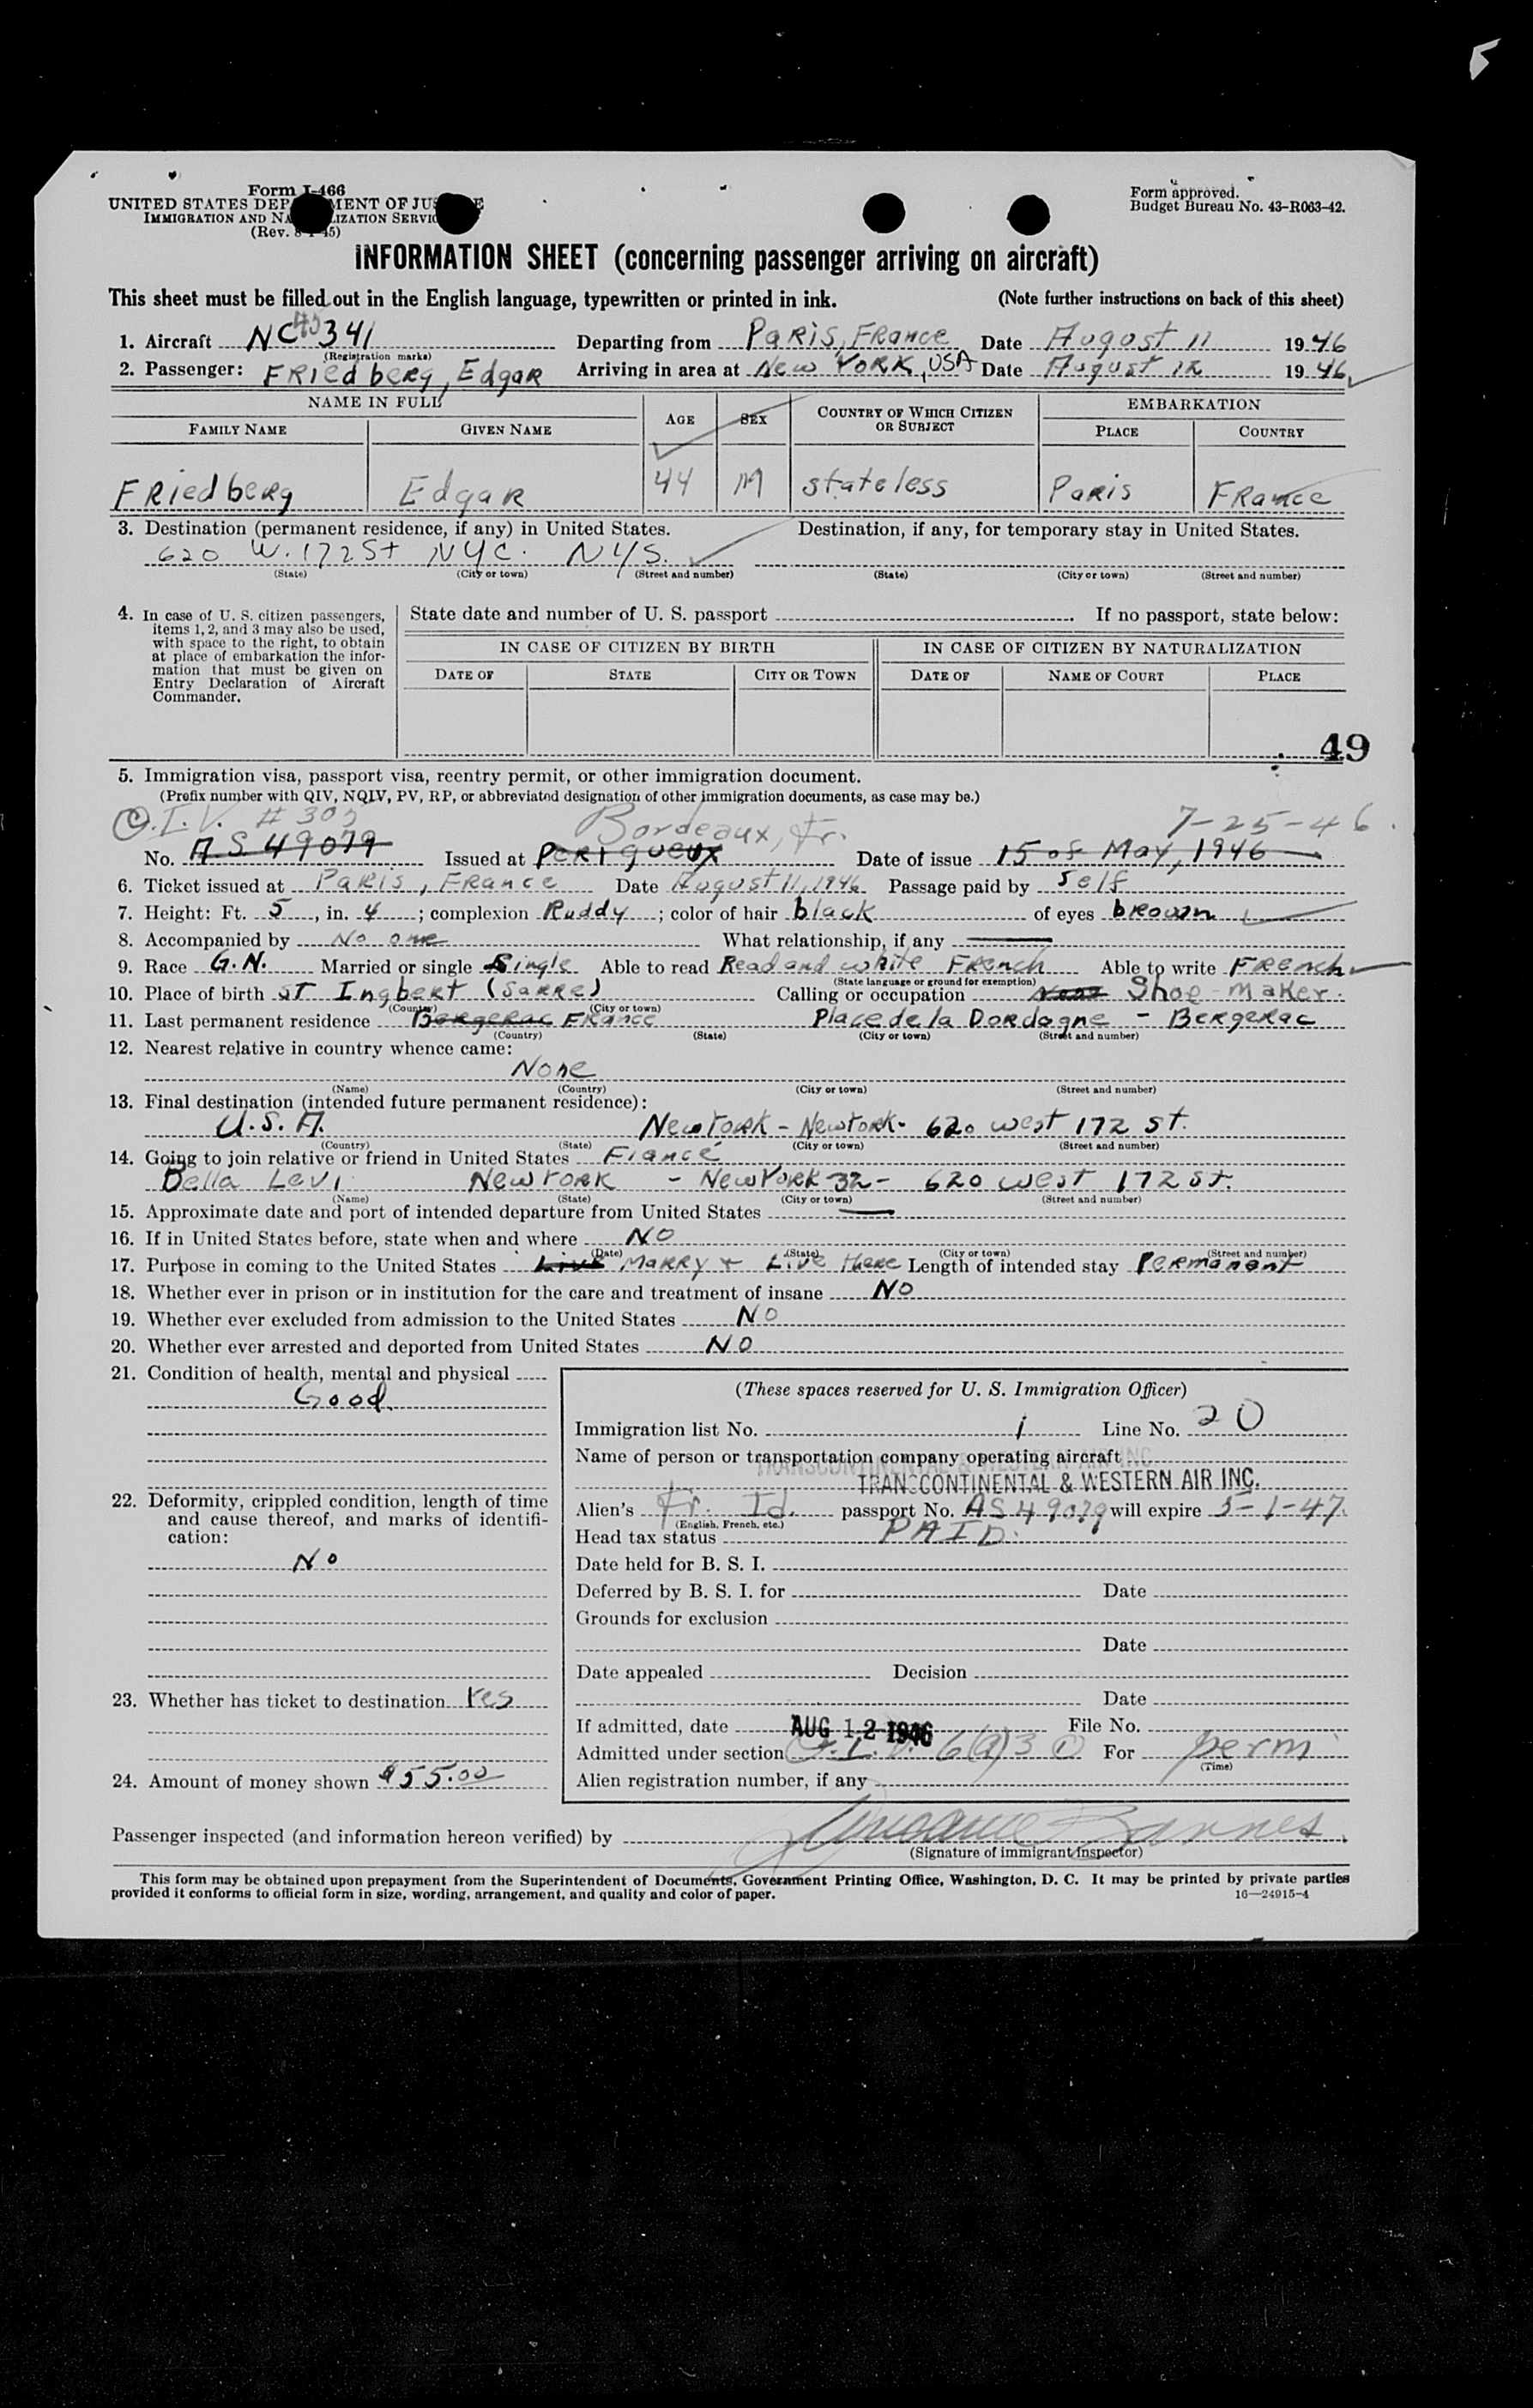 Form I-466
UNITED STATES DEPARTMENT OF JUSTICE
IMMIGRATION AND NATURALIZATION SERVICE
(Rev. 8-1-45)
Form approved.
Budget Bureau No. 43-R063-42.
INFORMATION SHEET (concerning passenger arriving on aircraft)
This sheet must be filled out in the English language, typewritten or printed in ink. (Note further instructions on back of this sheet)
1. Aircraft NC 341 Departing from Paris, France Date August 11 1946
(Registration marks)
2. Passenger: Friedberg, Edgar Arriving in area at New York, USA Date August 12 1946
NAME IN FULL AGE SEX COUNTRY OF WHICH CITIZEN OR SUBJECT EMBARKATION
FAMILY NAME GIVEN NAME PLACE COUNTRY
Friedberg Edgar 44 M stateless Paris France
3. Destination (permanent residence, if any) in United States. Destination, if any, for temporary stay in United States.
620 W. 172 St NYC. NYS.
(State) (City or town) (Street and number) (State) (City or town) (Street and number)
4. In case of U. S. citizen passengers, items 1, 2, and 3 may also be used, with space to the right, to obtain at place of embarkation the information that must be given on Entry Declaration of Aircraft Commander.
State date and number of U. S. passport . If no passport, state below:
IN CASE OF CITIZEN BY BIRTH IN CASE OF CITIZEN BY NATURALIZATION
DATE OF STATE CITY OR TOWN DATE OF NAME OF COURT PLACE
49
5. Immigration visa, passport visa, reentry permit, or other immigration document.
(Prefix number with QIV, NQIV, PV, RP, or abbreviated designation of other immigration documents, as case may be.)
Q.I.V. # 303 Bordeaux, Fr. 7-25-46.
No. AS 49079 Issued at Perigueux Date of issue 15 of May, 1946
6. Ticket issued at Paris, France Date August 11, 1946 Passage paid by Self
7. Height: Ft. 5, in. 4; complexion Ruddy; color of hair black of eyes brown
8. Accompanied by No one What relationship, if any —
9. Race G.N. Married or single Single Able to read Read and white French Able to write French
(State language or ground for exemption)
10. Place of birth ST Ingbert (Sarre) Calling or occupation Shoe-Maker.
(Country) (City or town)
11. Last permanent residence Bergerac France Place de la Dordogne - Bergerac
(Country) (State) (City or town) (Street and number)
12. Nearest relative in country whence came:
None
(Name) (Country) (City or town) (Street and number)
13. Final destination (intended future permanent residence):
U.S.A. New York - New York - 620 west 172 st.
(Country) (State) (City or town) (Street and number)
14. Going to join relative or friend in United States Fiancé
Bella Levi New York - New York 32 - 620 west 172 st.
(Name) (State) (City or town) (Street and number)
15. Approximate date and port of intended departure from United States —
16. If in United States before, state when and where NO
(Date) (State) (City or town) (Street and number)
17. Purpose in coming to the United States Live Marry + Live there Length of intended stay Permanent
18. Whether ever in prison or in institution for the care and treatment of insane NO
19. Whether ever excluded from admission to the United States NO
20. Whether ever arrested and deported from United States NO
21. Condition of health, mental and physical
Good.
22. Deformity, crippled condition, length of time and cause thereof, and marks of identification:
No
23. Whether has ticket to destination Yes
24. Amount of money shown $55.00
(These spaces reserved for U. S. Immigration Officer)
Immigration list No. 1 Line No. 20
Name of person or transportation company operating aircraft
TRANSCONTINENTAL & WESTERN AIR INC.
Alien's Fr. Id. passport No. AS 49079 will expire 5-1-47.
(English, French, etc.)
Head tax status PAID.
Date held for B. S. I.
Deferred by B. S. I. for Date
Grounds for exclusion
Date
Date appealed Decision
Date
If admitted, date AUG 12 1946 File No.
Admitted under section 6(a)3 For perm
(Time)
Alien registration number, if any
Passenger inspected (and information hereon verified) by Barnes
(Signature of immigrant inspector)
This form may be obtained upon prepayment from the Superintendent of Documents, Government Printing Office, Washington, D. C. It may be printed by private parties
provided it conforms to official form in size, wording, arrangement, and quality and color of paper. 16—24915-4